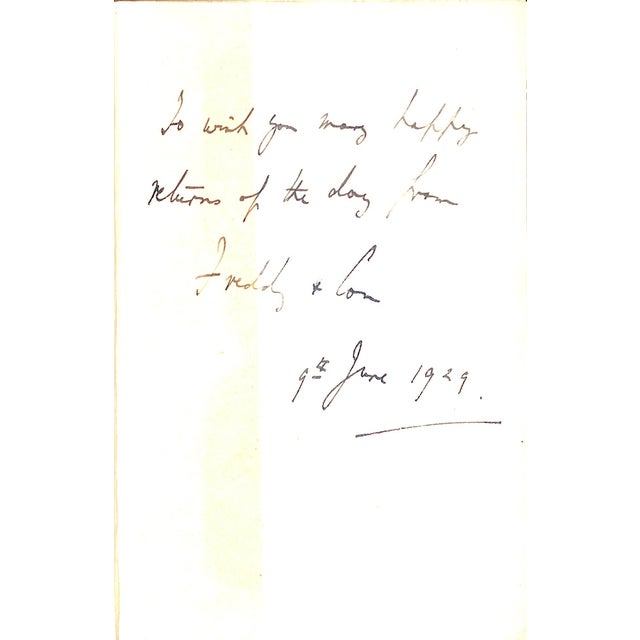 To wish you many happy
returns of the day from
Freddy & Con
9th June 1929.